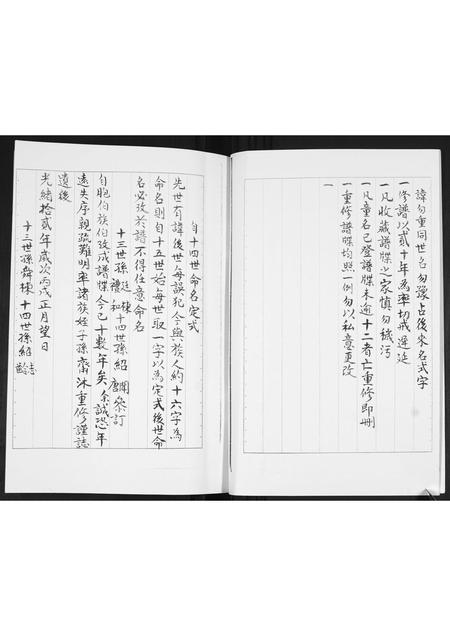 諱勿重同世名勿豫占後來名式字
一修譜以貳十年為率切戒遲延
一凡收藏譜牒之家慎勿穢污
一凡童名已登譜牒未逾十二者亡重修即刪
一重修譜牒均照一例勿以私意更改
一
自十四世命名定式
先世有諱後世每誤犯今與族人約十六字為
命名則自十五世始每世取一字以為定式後世命
名必攷於譜不得任意命名
十三世孫 廷棟 禮和 十四世孫紹 閎 叅訂
自胞伯族伯攷成譜牒今已十數年矣余誠恐年
遠失序親疏難明率諸族姪子孫齋沐重修謹誌
遺後
光緒拾貳年歲次丙戌正月望日
十三世孫舜棟 十四世孫紹 齡 志